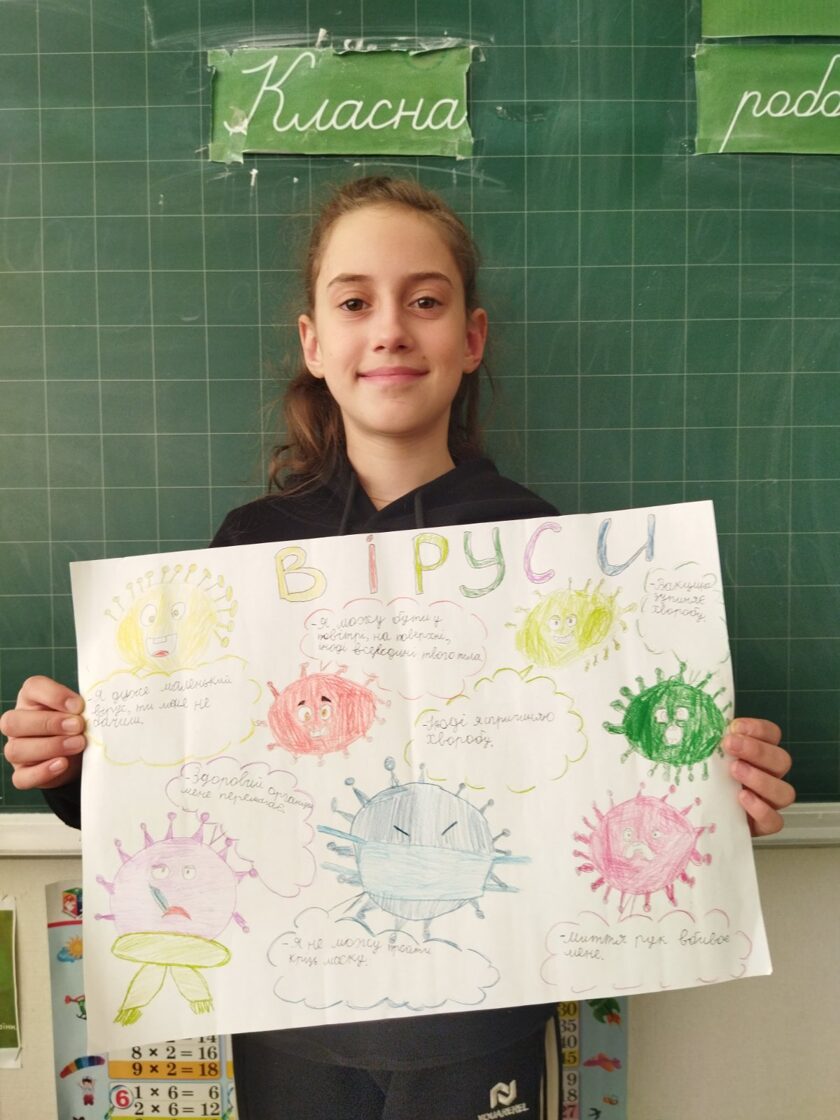 Класна
робо
Віруси
- Я дуже маленький
вірус, ти мене не
бачиш.
- Я можу бути у
повітрі, на поверхні,
іноді всередині твого тіла
- Іноді я спричиняю
хворобу.
- Вакцина
зупиняє
хворобу.
- Здоровий організм
мене перемагає.
- Я не можу пройти
крізь маску.
- Миття рук вбиває
мене.
8 × 2 = 16
9 × 2 = 18
6
1 × 6 = 6
2 × 6 = 12
30
35
40
45
9
18
27